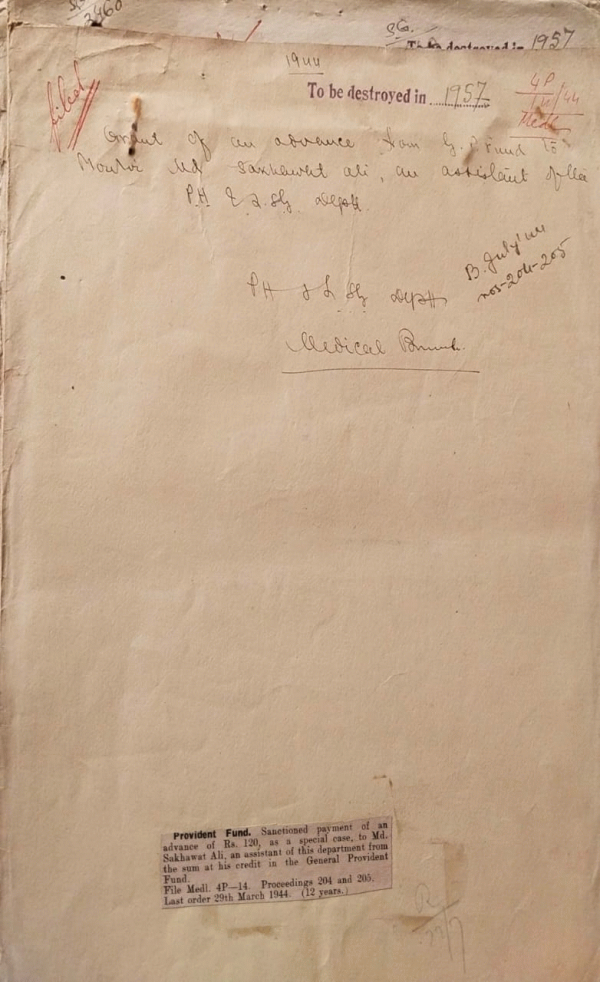 3460
36.
To be destroyed in 1957
1944
To be destroyed in 1957
filed
4P
44
Medl
Grant of an advance from G. P. Fund to
Moulvi Md Sakhawat Ali, an assistant of the
P.H & L.S.G Deptt.
B. July '44
nos-204-205
PH & L.S.G Deptt
Medical Branch.
Provident Fund. Sanctioned payment of an
advance of Rs. 120, as a special case, to Md.
Sakhawat Ali, an assistant of this department from
the sum at his credit in the General Provident
Fund.
File Medl. 4P—14. Proceedings 204 and 205.
Last order 29th March 1944. (12 years.)